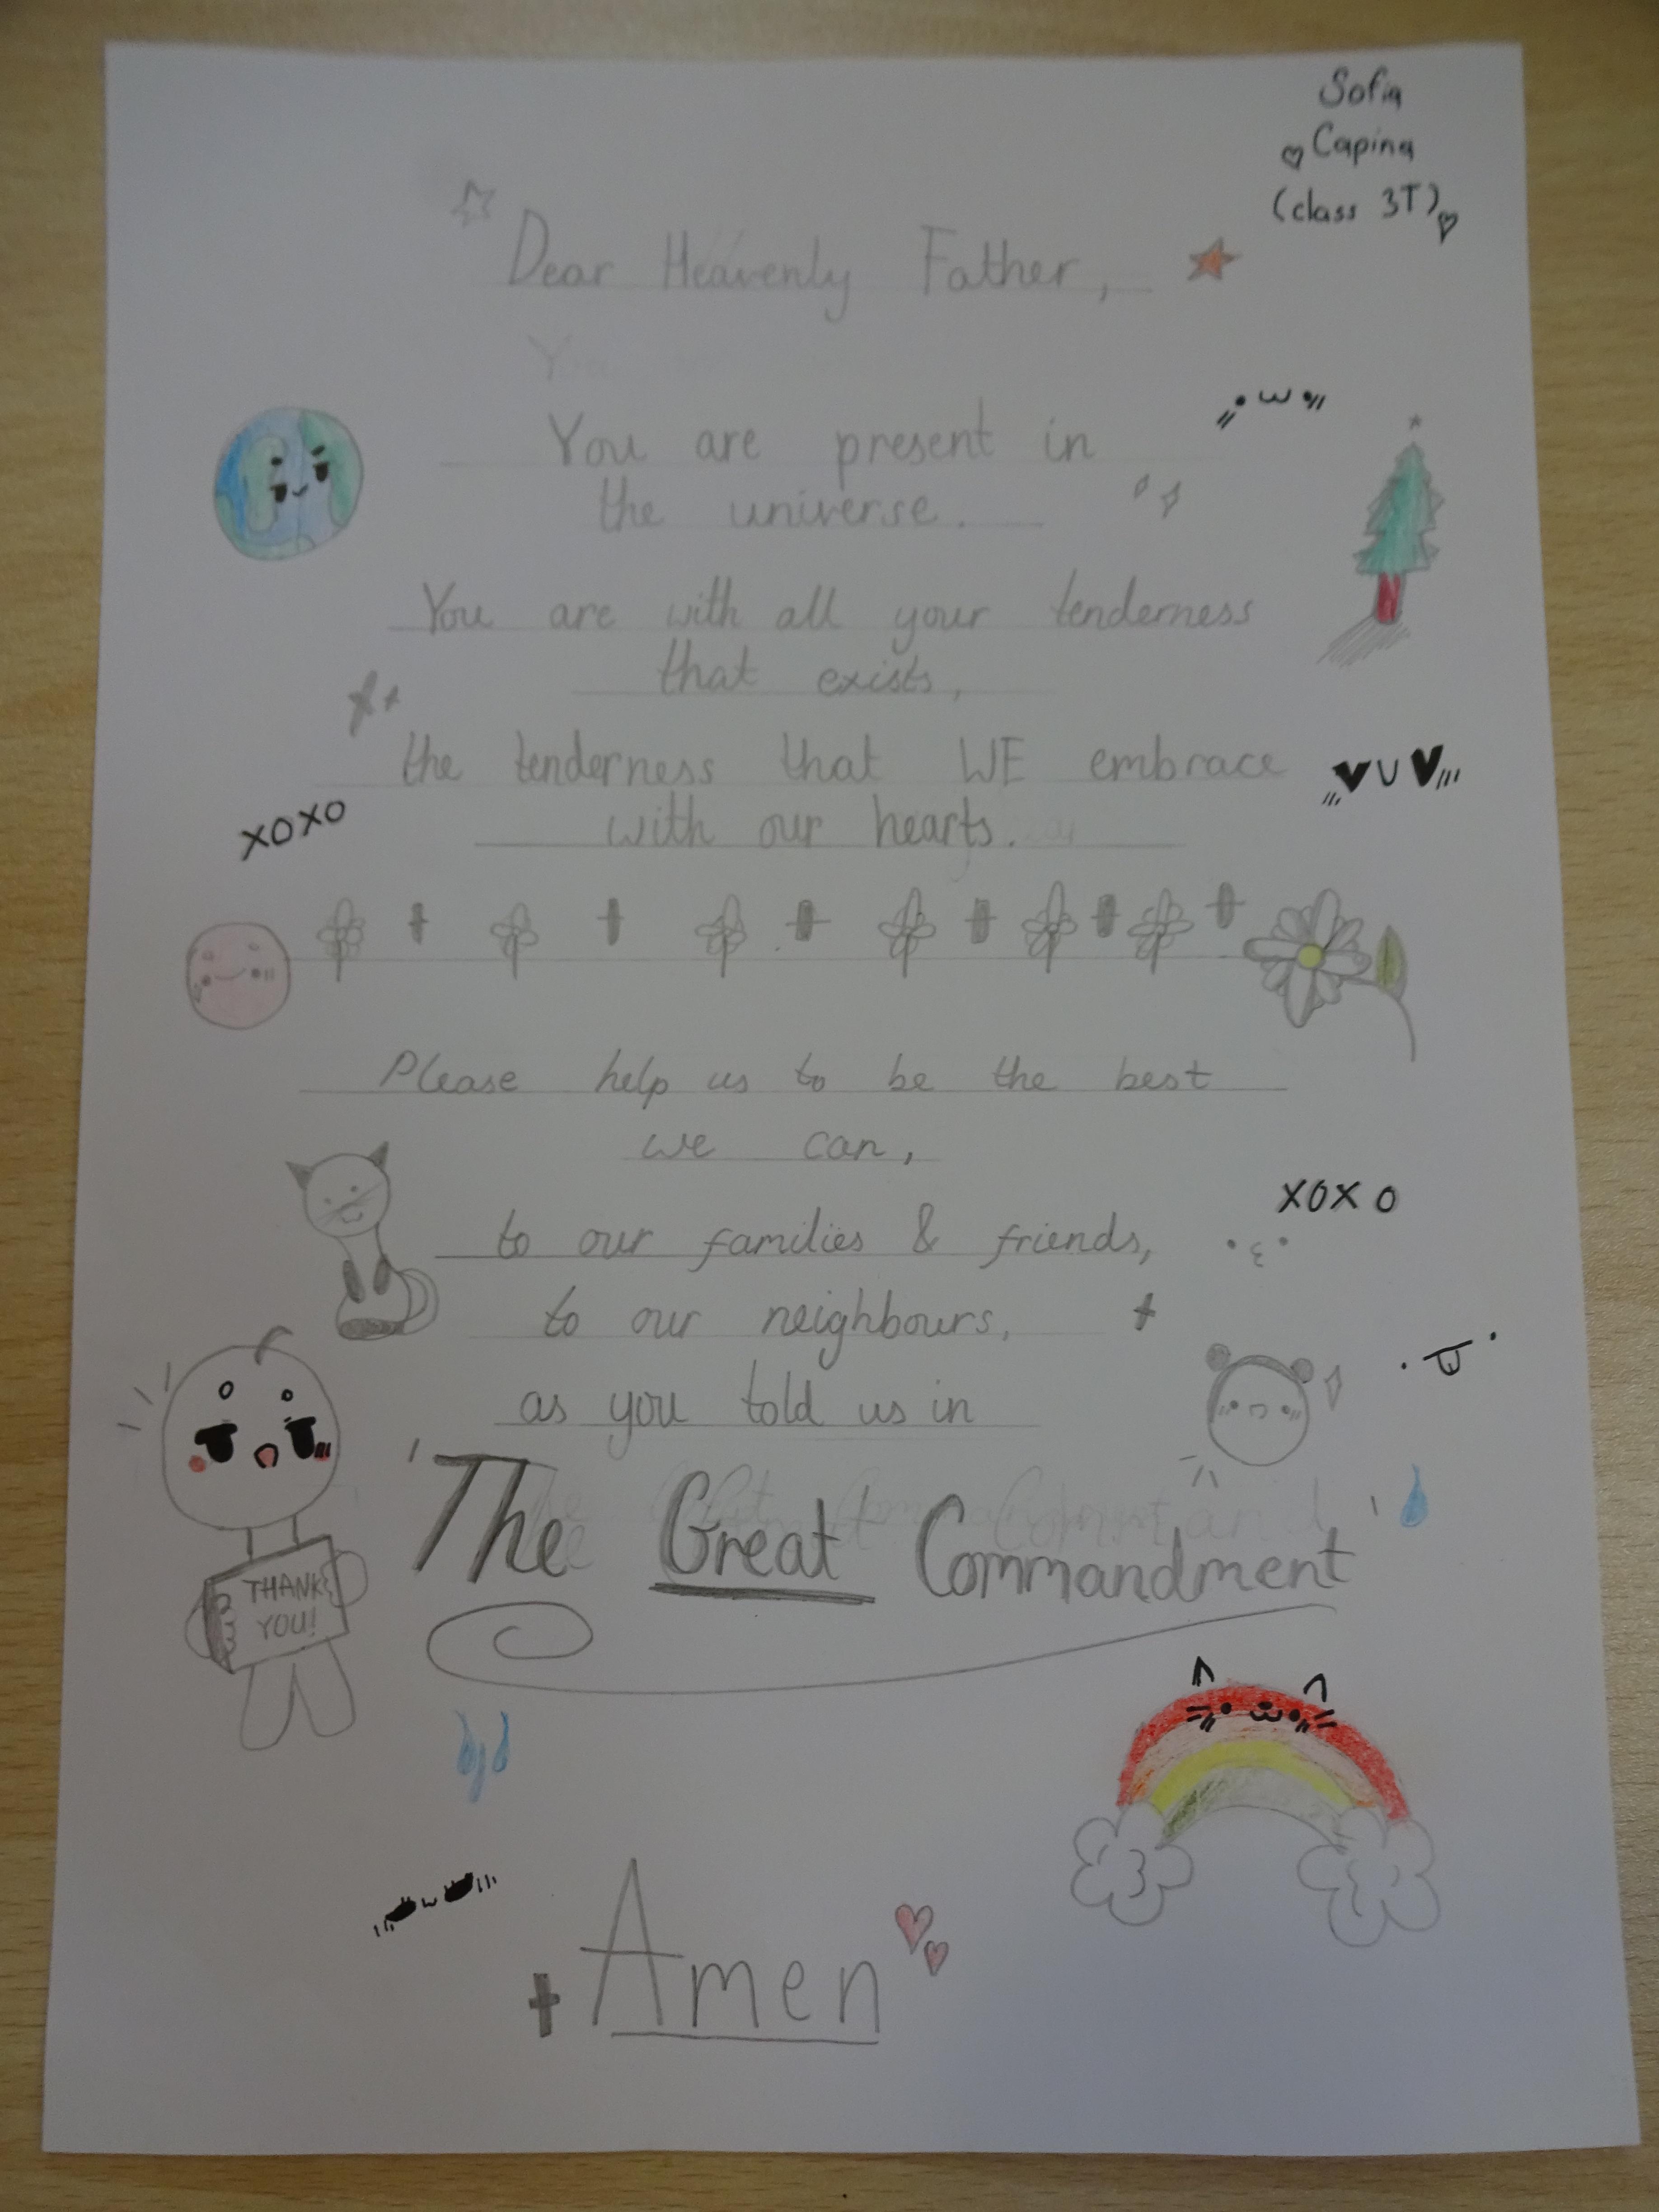 Sofia
Capina
(class 3T)
Dear Heavenly Father,
You are present in
the universe.
You are with all your tenderness
that exists,
the tenderness that WE embrace
with our hearts.
xoxo
Please help us to be the best
we can,
xoxo
to our families & friends,
to our neighbours,
as you told us in
'The Great Commandment'
THANK
YOU!
Amen